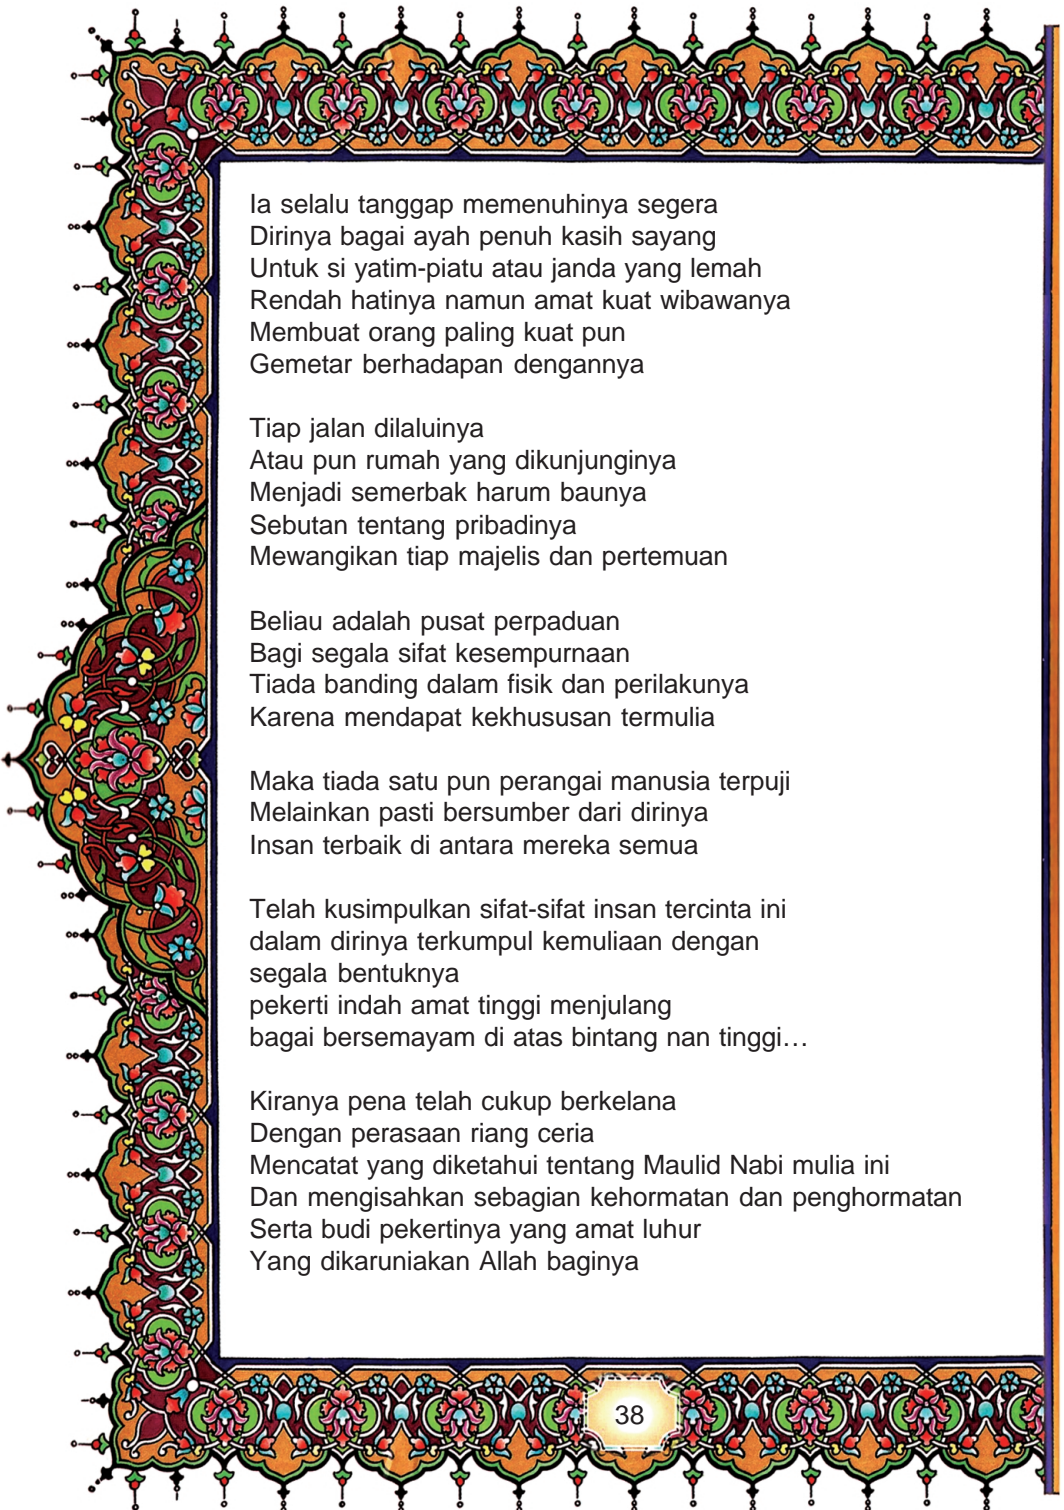 Ia selalu tanggap memenuhinya segera
Dirinya bagai ayah penuh kasih sayang
Untuk si yatim-piatu atau janda yang lemah
Rendah hatinya namun amat kuat wibawanya
Membuat orang paling kuat pun
Gemetar berhadapan dengannya

Tiap jalan dilaluinya
Atau pun rumah yang dikunjunginya
Menjadi semerbak harum baunya
Sebutan tentang pribadinya
Mewangikan tiap majelis dan pertemuan

Beliau adalah pusat perpaduan
Bagi segala sifat kesempurnaan
Tiada banding dalam fisik dan perilakunya
Karena mendapat kekhususan termulia

Maka tiada satu pun perangai manusia terpuji
Melainkan pasti bersumber dari dirinya
Insan terbaik di antara mereka semua

Telah kusimpulkan sifat-sifat insan tercinta ini
dalam dirinya terkumpul kemuliaan dengan
segala bentuknya
pekerti indah amat tinggi menjulang
bagai bersemayam di atas bintang nan tinggi…

Kiranya pena telah cukup berkelana
Dengan perasaan riang ceria
Mencatat yang diketahui tentang Maulid Nabi mulia ini
Dan mengisahkan sebagian kehormatan dan penghormatan
Serta budi pekertinya yang amat luhur
Yang dikaruniakan Allah baginya

38